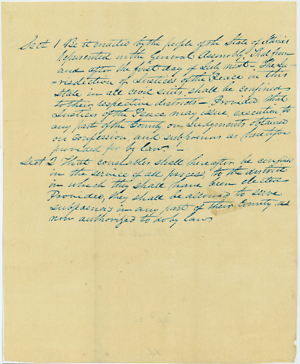 Sect 1 Be it enacted by the people of the State of Illinois
represented in the General Assembly That from
and after the first day of July next — The Ju-
risdiction of Justices of the Peace in this
State in all civil suits shall be confined
to their respective districts — Provided that
Justices of the Peace may issue execution to
any part of the County on Judgments
on Confession and subpoenas as heretofore
provided for by law. —
Sect 2 That constables shall hereafter be confined
in the service of all process, to the district
in which they shall have been elected
Provided, they shall be allowed to serve
subpoenas in any part of their County as
now authorized to do by law.